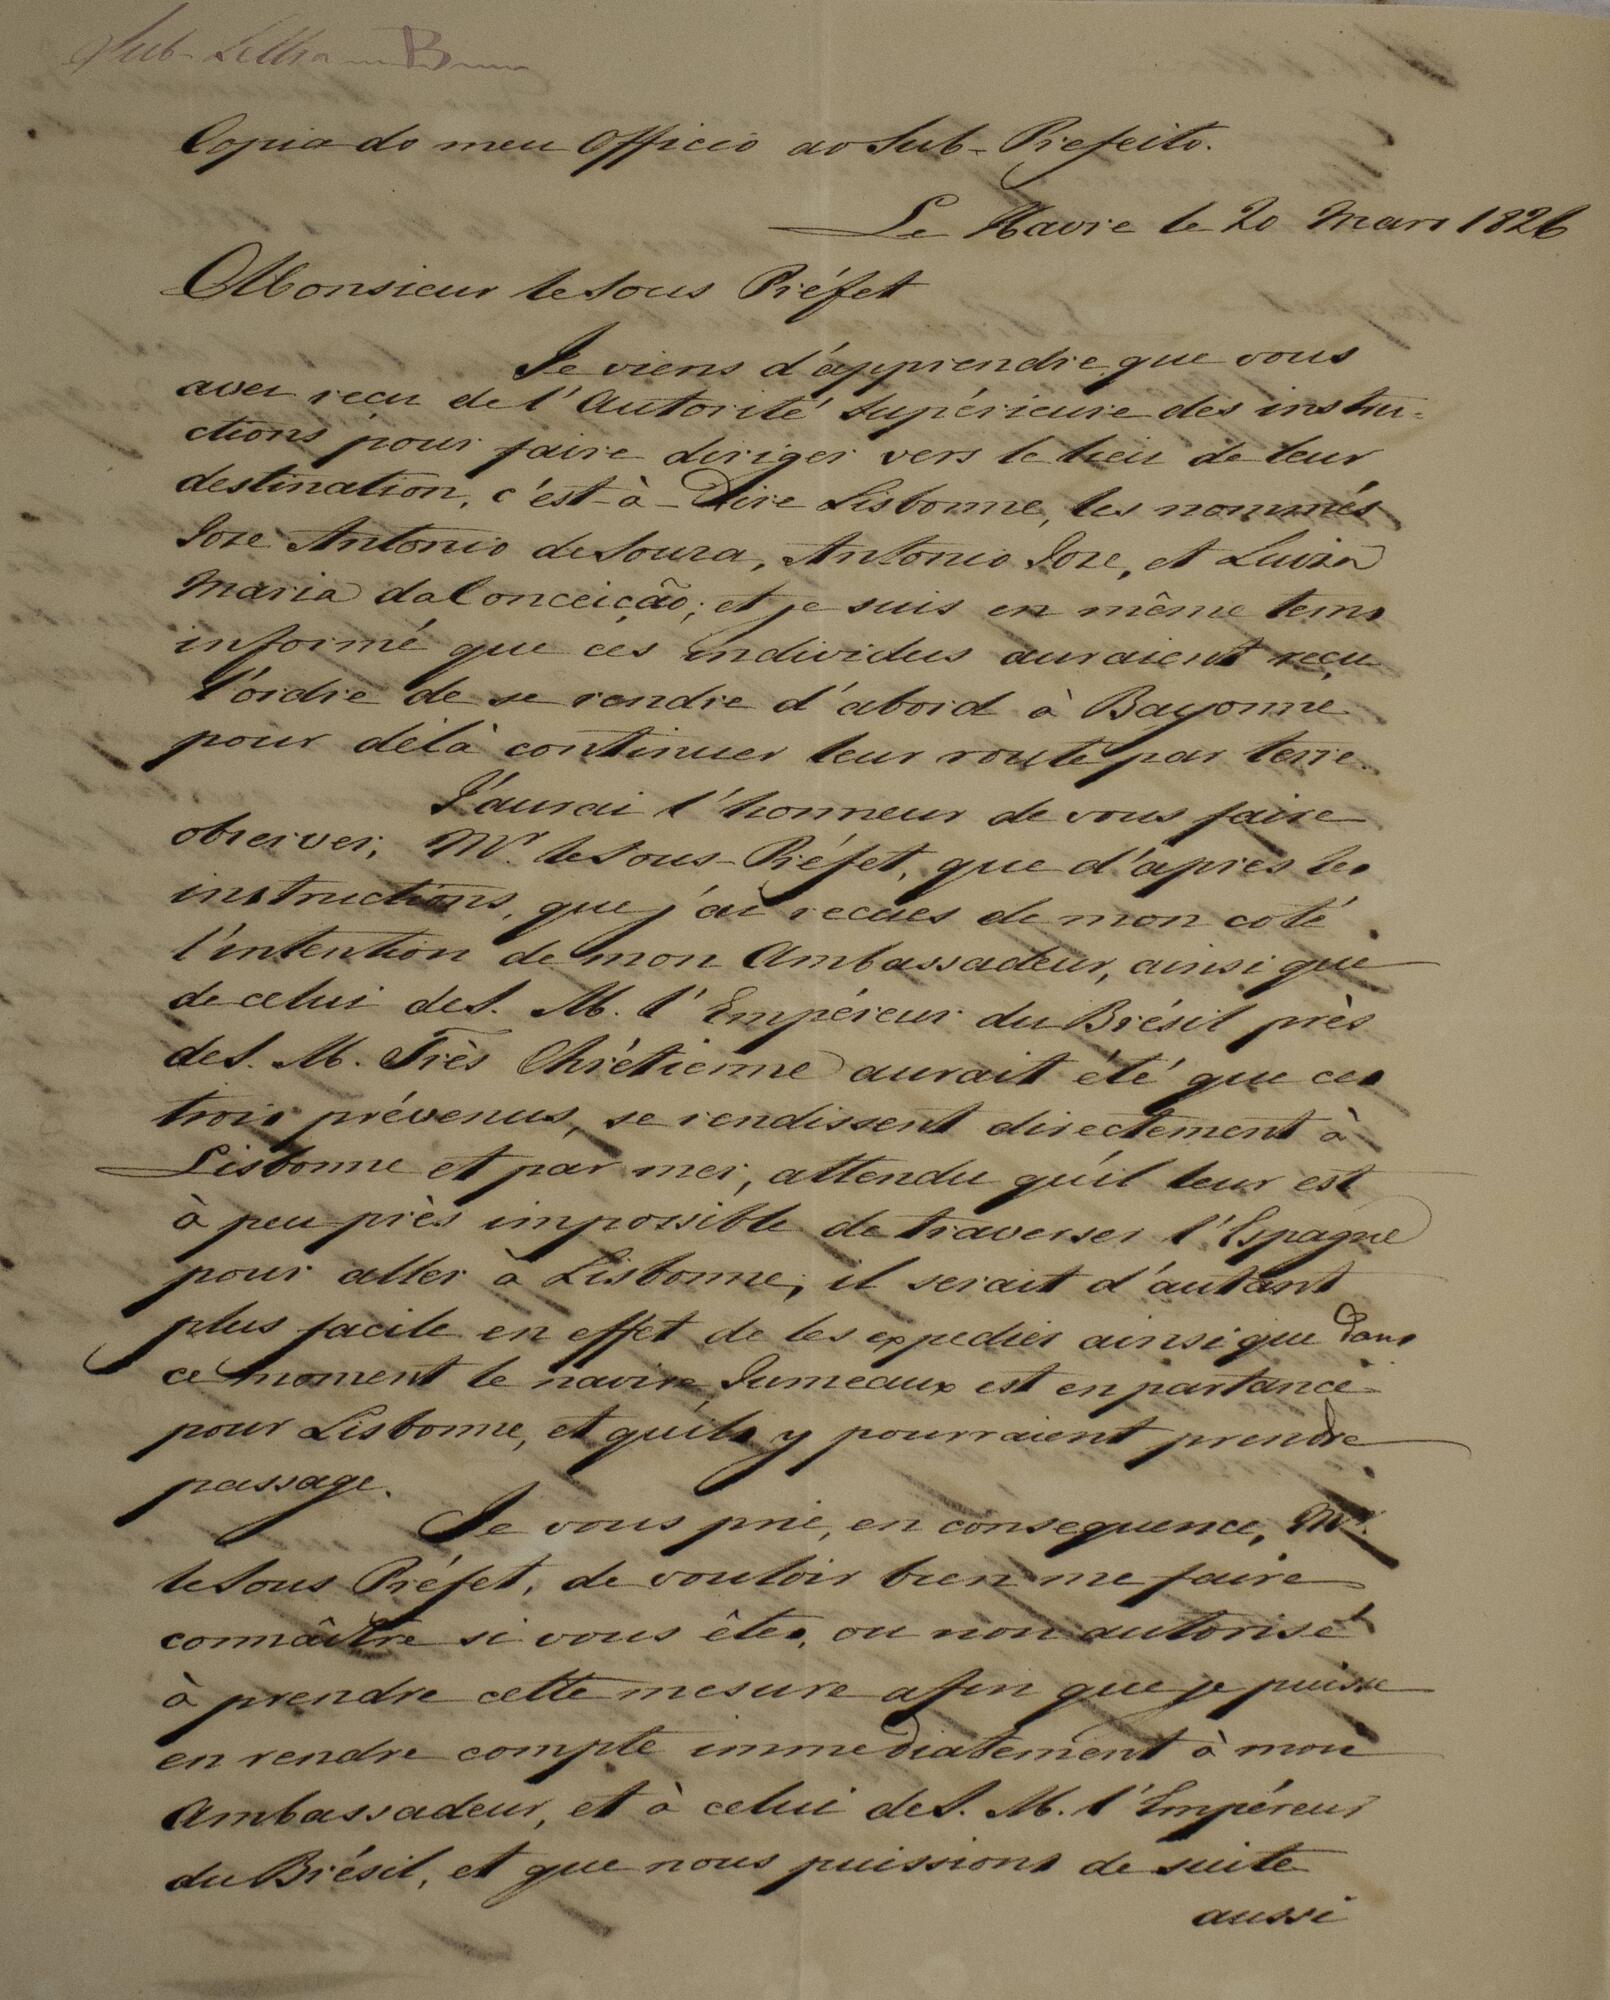 Sub-Lettra B
Copia do meu Officio ao Sub-Prefeito.
Le Havre le 20 Mars 1826
Monsieur le Sous Préfet
Je viens d'apprendre que vous
avez reçu de l'Autorité Supérieure des instru-
ctions pour faire diriger vers le lieu de leur
destination, c'est-à-Dire Lisbonne, les nommés
Joze Antonio de Souza, Antonio Joze, et Luiza
Maria da Conceição; et je suis en même tems
informé que ces individus auraient reçu
l'ordre de se rendre d'abord à Bayonne
pour délà continuer leur route par terre.
J'aurai l'honneur de vous faire
observer, Mr. le Sous-Préfet, que d'après les
instructions, que j'ai recues de mon coté
l'intention de mon Ambassadeur, ainsi que
de celui de S. M. l'Empéreur du Brésil près
de S. M. Très Chrétienne aurait été que ces
trois prévenus, se rendissent directement à
Lisbonne et par mer, attendu qu'il leur est
à peu près impossible de traverser l'Espagne
pour aller à Lisbonne; il serait d'autant
plus facile en effet de les expedier ainsi que Dans
ce moment le navire Jumeaux est en partance
pour Lisbonne, et qu'ils y pourraient prendre
passage.
Je vous prie, en consequence, Mr.
le Sous Préfet, de vouloir bien me faire
connaître si vous êtes, ou non autorisé
à prendre cette mesure afin que je puisse
en rendre compte immediatement à mon
Ambassadeur, et à celui de S. M. l'Empéreur
du Brésil, et que nous puissions de suite
aussi